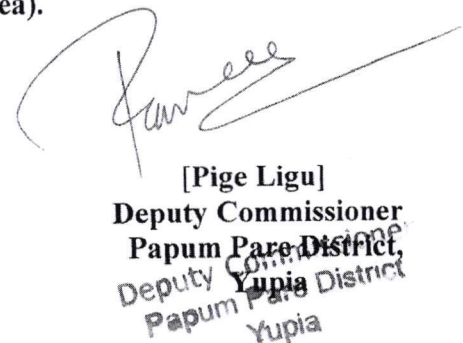 ea).
[Pige Ligu]
Deputy Commissioner
Papum Pare District,
Yupia
Deputy Commissioner
Papum Pare District
Yupia